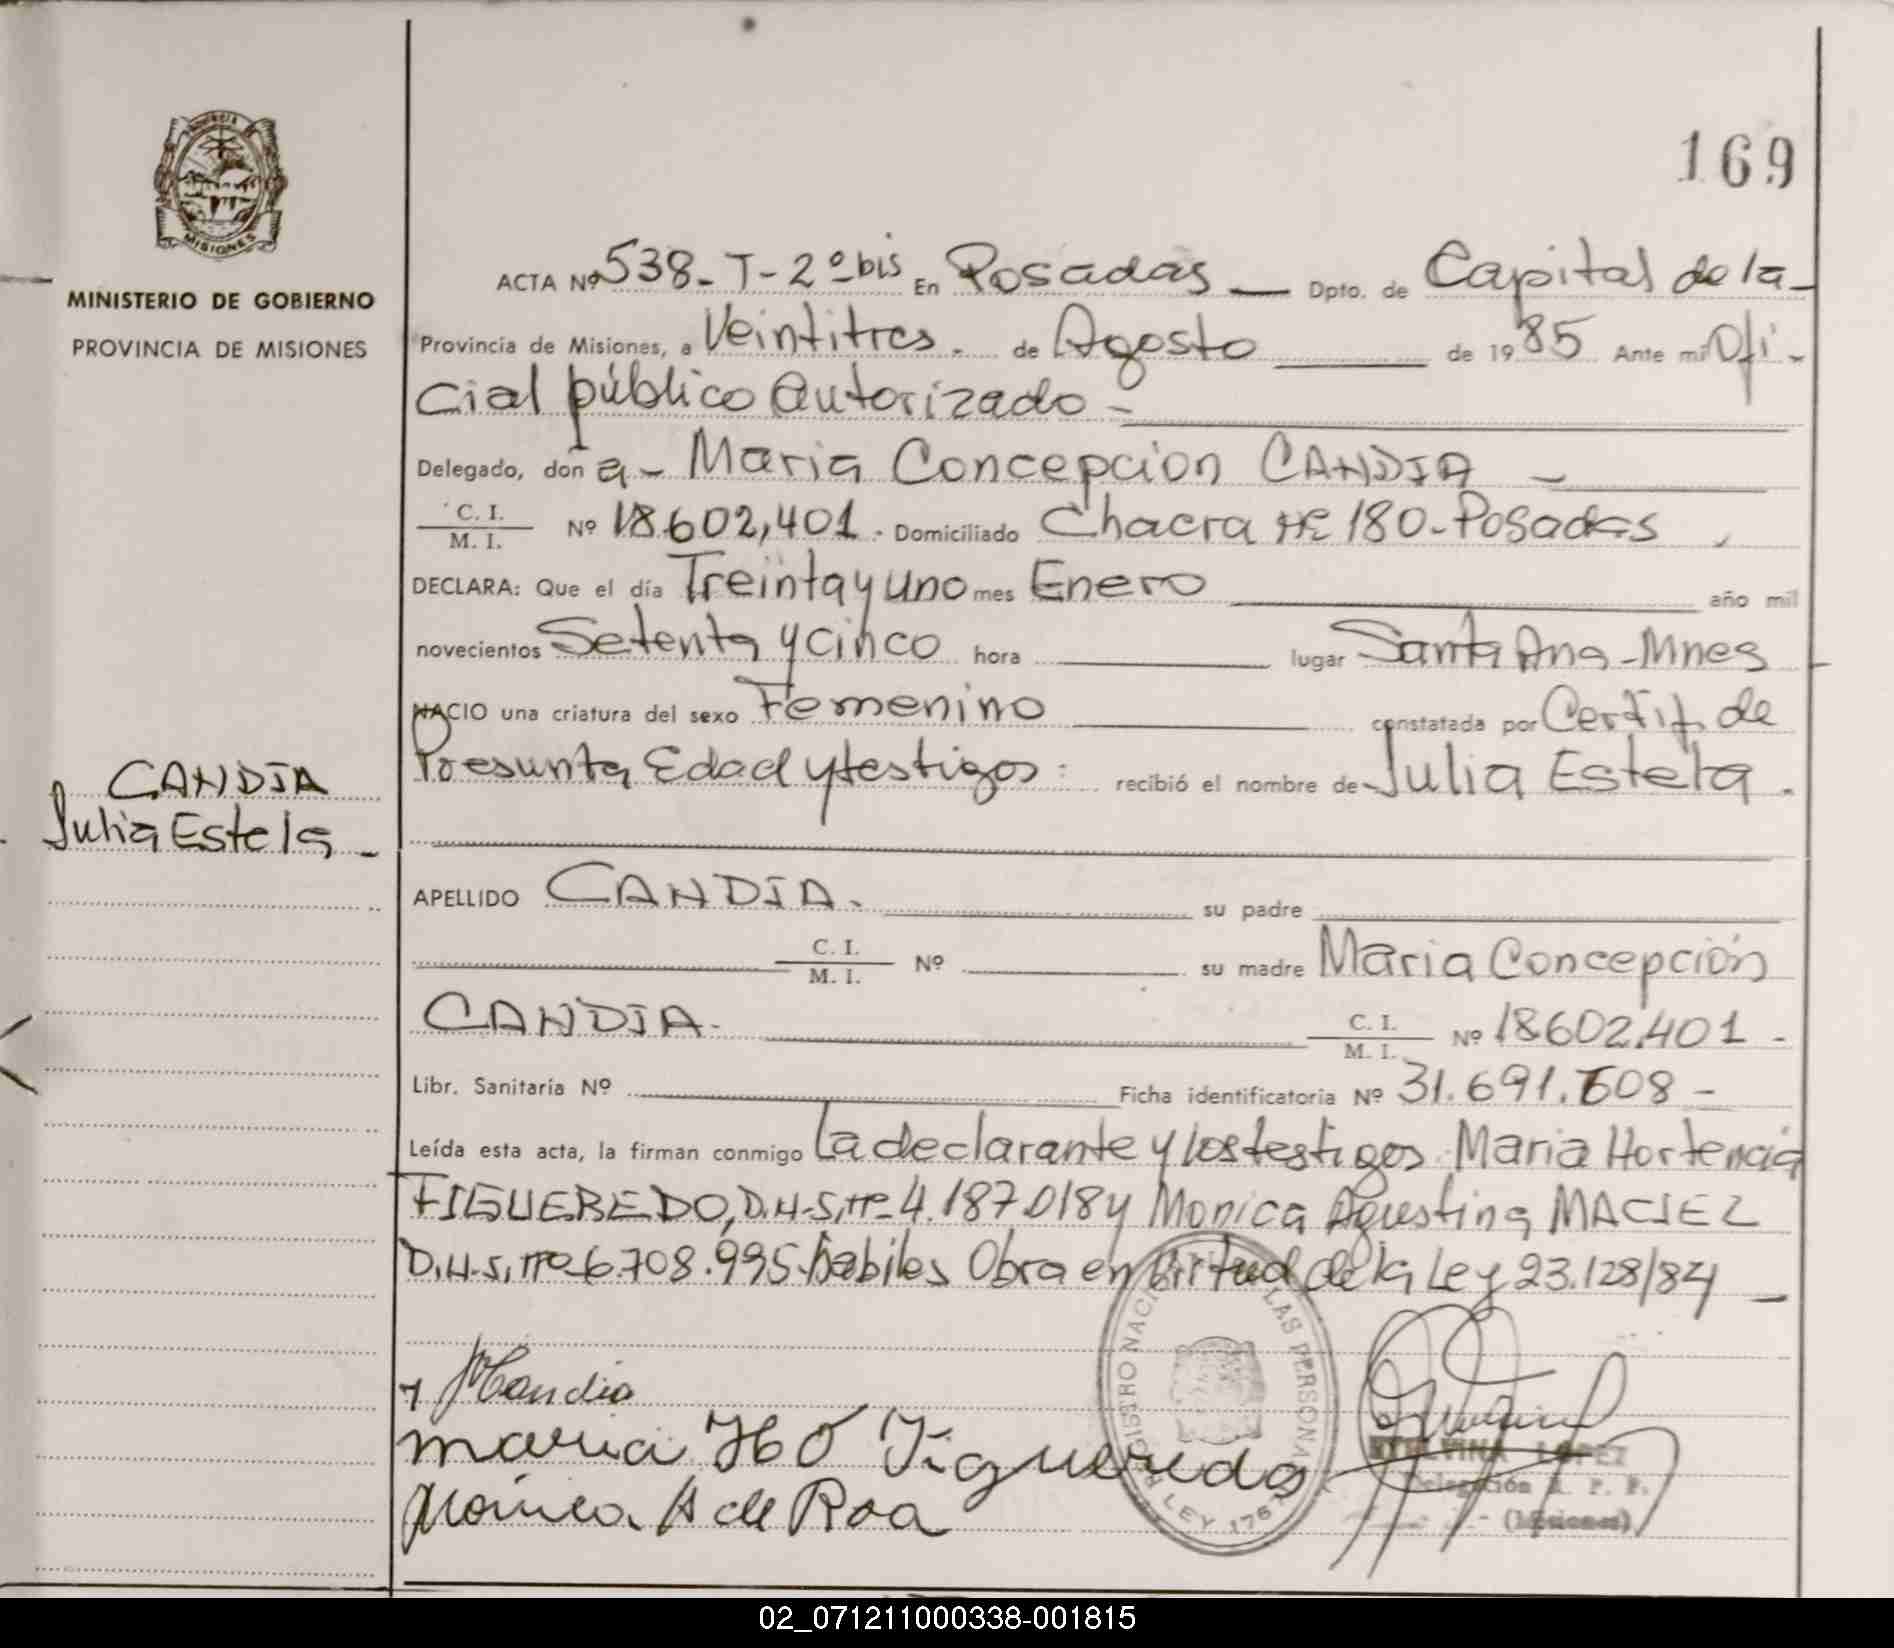 169
PROVINCIA DE
MISIONES
MINISTERIO DE GOBIERNO
PROVINCIA DE MISIONES
CANDIA
Julia Estela
ACTA Nº 538-T-2º bis En Posadas Dpto. de Capital de la
Provincia de Misiones, a Veintitres. de Agosto de 1985 Ante mi Ofi-
cial público autorizado -
Delegado, don a - Maria Concepcion CANDIA
C. I.
M. I. Nº 18.602,401. Domiciliado Chacra Nº 180-Posadas
DECLARA: Que el día Treinta y uno mes Enero año mil
novecientos Setenta y cinco hora lugar Santa Ana-Mnes
NACIO una criatura del sexo Femenino constatada por Certif. de
Presunta Edad y testigos: recibió el nombre de Julia Estela.
APELLIDO CANDIA. su padre
C. I.
M. I. Nº su madre Maria Concepción
CANDIA. C. I.
M. I. Nº 18602.401 -
Libr. Sanitaría Nº Ficha identificatoria Nº 31.691.608 -
Leída esta acta, la firman conmigo La declarante y los testigos Maria Hortencia
FIGUEREDO, D.N.I, Nº 4.187.018 y Monica Agustina MACIEL
D.N.I, Nº 6.708.995. habiles Obra en virtud de la Ley 23.128/84
Candia
maria Figueredo
Mónica A de Roa
REGISTRO NACIONAL LAS PERSONAS
LEY 1767
LOPEZ
Delegación R. P. P.
(Misiones)
02_071211000338-001815